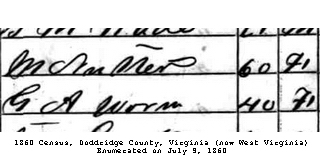 60 F
G A Worm 40 F
1860 Census, Doddridge County, Virginia (now West Virginia)
Enumerated on July 9, 1860